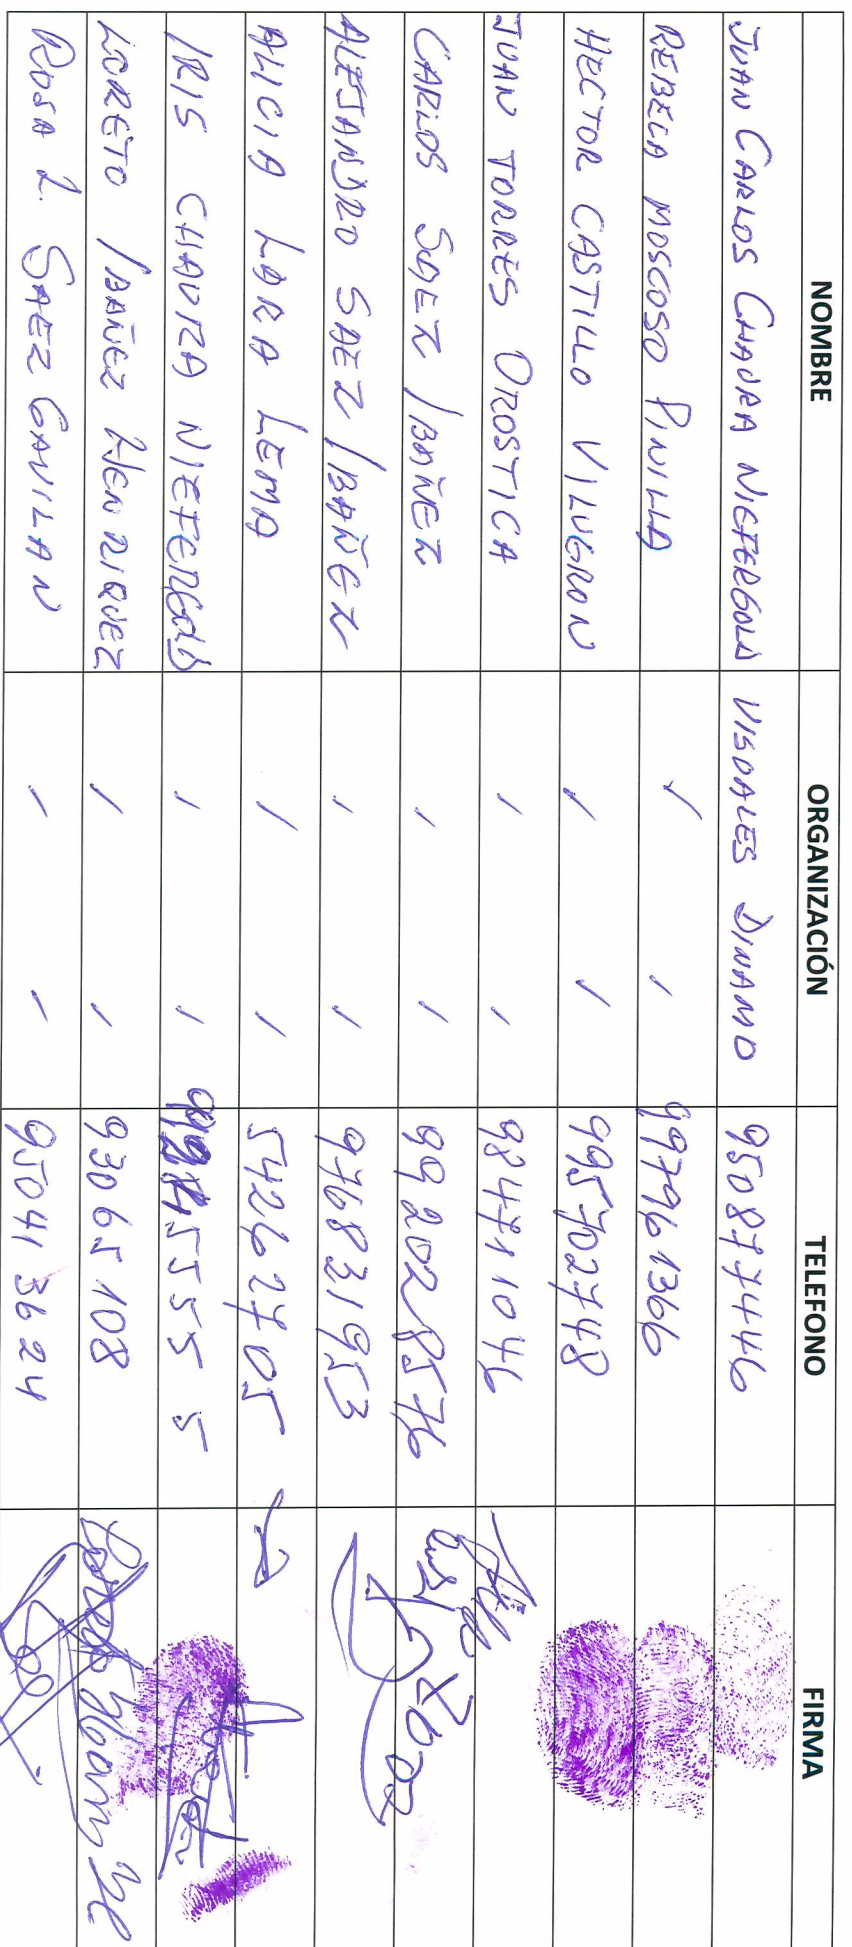 NOMBRE ORGANIZACIÓN TELEFONO FIRMA
JUAN CARLOS CHAURA NIEFERGOLD VISUALES DINAMO 950877446
REBECA MOSCOSO PINILLA / / 997961366
HECTOR CASTILLO VILUGRON / / 995702748
JUAN TORRES OROSTICA / / 984711046
CARLOS SAEZ IBAÑEZ / / 992028576
ALEJANDRO SAEZ IBAÑEZ / / 976831953
ALICIA LARA LEMA / / 54262705
IRIS CHAURA NIEFERGOLD / / 5555
LORETO IBAÑEZ HENRIQUEZ / / 93065108
ROSA L. SAEZ GAVILAN / / 950413624